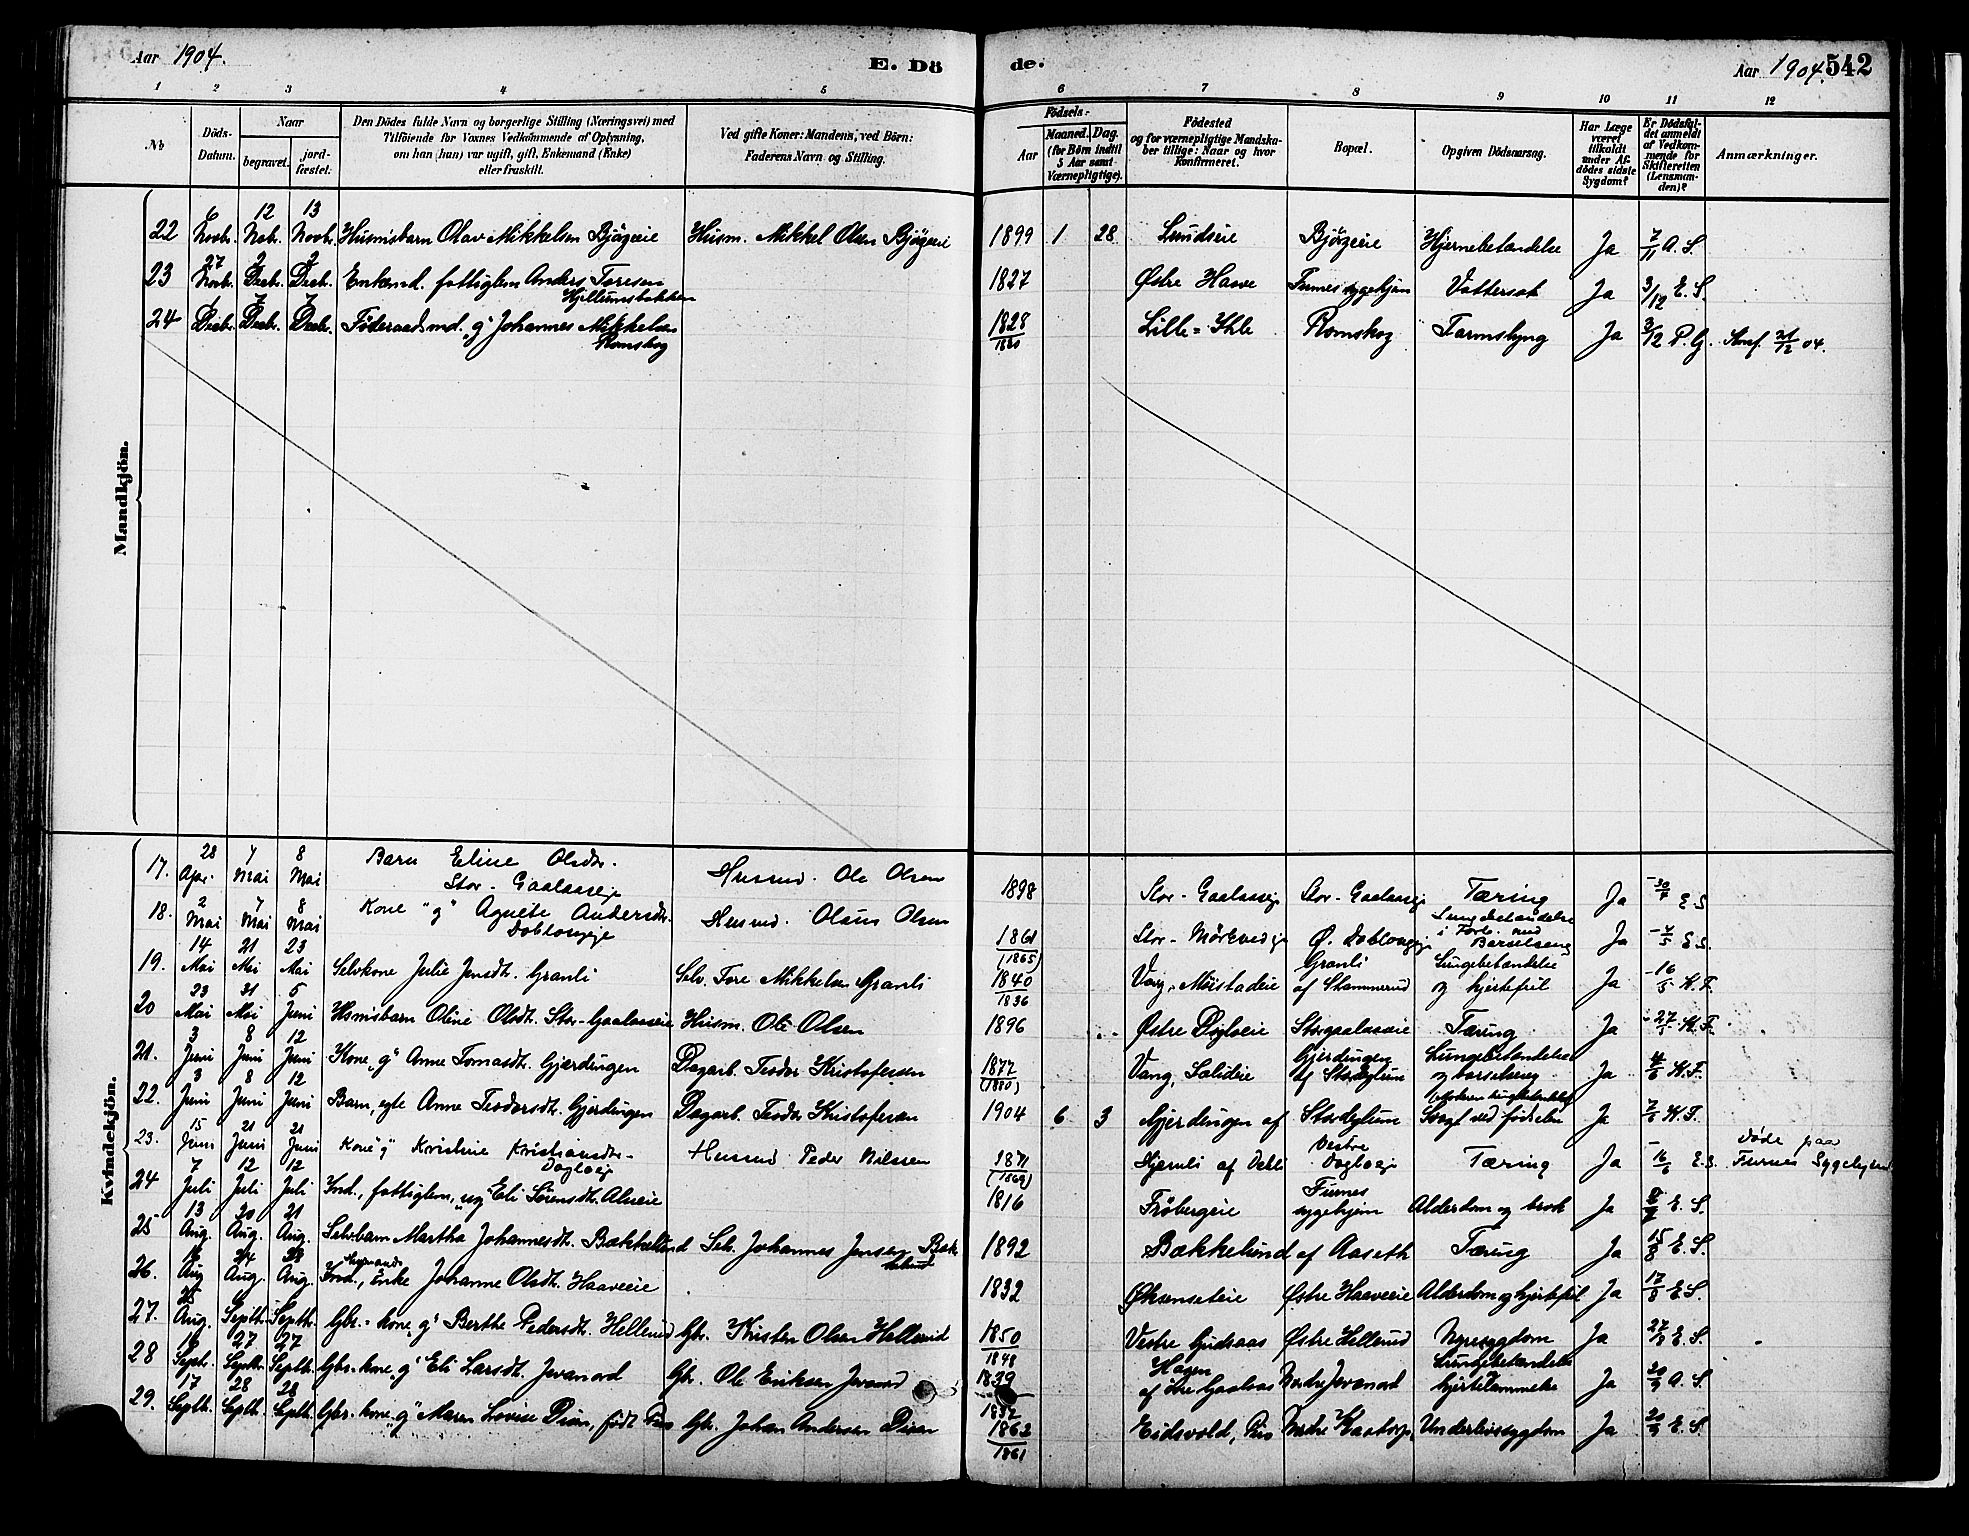 Aar 1904.
E. Dö
de.
Aar 1904. 542
1 2 3 4 5 6 7 8 9 10 11 12
No
Döds-Datum.
Naar
begravet.
jord-fæstet.
Den Dödes fulde Navn og borgerlige Stilling (Næringsvei) med
Tilföiende for Voxnes Vedkommende af Oplysning,
om han (hun) var ugift, gift, Enkemand (Enke)
eller fraskilt.
Ved gifte Koner: Mandens, ved Börn:
Faderens Navn og Stilling.
Födsels-
Aar
Maaned. Dag.
(for Börn indtil
5 Aar samt
Værnepligtige).
Födested
og for værnepligtige Mandska-
ber tillige: Naar og hvor
Konfirmeret.
Bopæl.
Opgiven Dödsaarsag.
Har Læge
været
tilkaldt
under Af-
dödes sidste
Sygdom?
Er Dödsfal-
det anmeldt
af Vedkom-
mende for
Skifteretten
(Lensman-
den)?
Anmærkninger.
Mandkjön.
22 6 Novb. 12 Nob. 13 Novb. Husm.barn Olav Mikkelsen Bjørgeie Husm. Mikkel Olsen Bjørgeie 1899 1 28 Lundseie Bjørgeie Hjernebetændelse Ja 7/11 A. S.
23 27 Novb. 2 Decb. 2 Decb. Enkemd. fattiglem Anders Toresen Hjellumstakken 1827 Østre Haave Furnes sygehjem Vattersot Ja 3/12 E. S.
24 1 Decb. 7 Decb. 7 Decb. Føderaadsmd. "g" Johannes Mikkelsen Romskog 1828 1830 Lille-Ihle Romskog Tarmslyng Ja 3/12 P. G. 21/12 04.
Kvindekjön.
17. 28 Apr. 7 Mai 8 Mai Barn Eline Olsdtr. Stor-Gaalaaseje Husmd. Ole Olsen 1898 Stor-Gaalaaseje Stor-Gaalaaseje Tæring Ja 30/4 E S
18. 2 Mai 7 Mai 8 Mai Kone "g" Agnete Andersdtr. Doblougeje Husmd. Olaus Olsen 1861 (1865) Stor-Mørkvedeje Ø. Doblougeje Lungebetændelse i Forb. med Barselseng Ja 4/5 E S.
19. 14 Mai 21 Mai 23 Mai Selvkone Julie Jensdt. Granli Selv. Tore Mikkelsen Granli 1840 1836 Vang, Mustadeie Granli af Stammerud Lungebetændelse og hjertefeil Ja 16/5 K. F.
20 23 Mai 31 Mai 5 Juni Husm.barn Oline Olsdt. Stor-Gaalaaseie Husm. Ole Olsen 1896 Østre Dogloeie Storgaalaaseie Tæring Ja 27/5 K. F.
21. 3 Juni 8 Juni 12 Juni Kone "g" Anne Tomasdt. Gjerdingen Dagarb. Teodor Kristofersen 1877 (1880) Vang, Gjerdingen af Lungebetændelse og barselseng Ja 4/6 K. F.
22. 3 Juni 8 Juni 12 Juni Barn, egte Anne Teodorsdt. Gjerdingen Dagarb. Teodor Kristofersen 1904 6 3 Gjerdingen af Svagt ved fødselen Ja 7/6 K. F.
23. 15 Juni 21 Juni 21 Juni Kone "g" Kristine Kristiansdtr. Dogloeje Husmd Peder Nilssen 1871 (1869) af Vestre Dogloeje Tæring Ja 16/6 E. S. Døde paa Furnes Sygehjem
24 7 Juli 12 Juli 12 Juli Ind., fattiglem, "ug" Eli Sørensdt. 1816 Frøbergeie Furnes sygehjem Alderdom og brok Ja E. S.
25 13 Aug. 20 Aug. 21 Aug. Selv.barn Martha Johannesdt. Bækkelund Selv. Johannes Jensen Bækkelund 1892 Bækkelund af Aaseth Tæring Ja 15/8 E. S.
26. 16 Aug 24 Aug. Aug. Ind., Enke Johanne Olsdt. Haaveeie 1832 Øksenseteie Østre Haaveeie Alderdom og hjertefeil Ja 17/8 E S.
27. 25 Aug. Septb. Septb. Gbr.-kone "g" Berthe Pedersdt. Hellerud Gbr. Kristen Olsen Hellerud 1850 1848 Vestre Gudsaas Østre Hellerud Nyresygdom Ja 27/8 E. S.
28 16 Septb. 27 Septb. 27 Septb. Gbr.-kone "g" Eli Larsdt. Jevanord Gbr. Ole Eriksen Jevanord 1839 1832 Hagen af Gaalaas Nordre Jevanord Lungebetændelse hjertelammelse Ja 20/9 A. S.
29. 17 Septb. 28 Septb. 28 Septb. Gbr.-kone "g" Maren Lovise Disen, født Gbr. Johan Andersen Disen 1862 1861 Eidsvold, Nedre Kaatorp Underlivssygdom Ja 20/9 E. S.